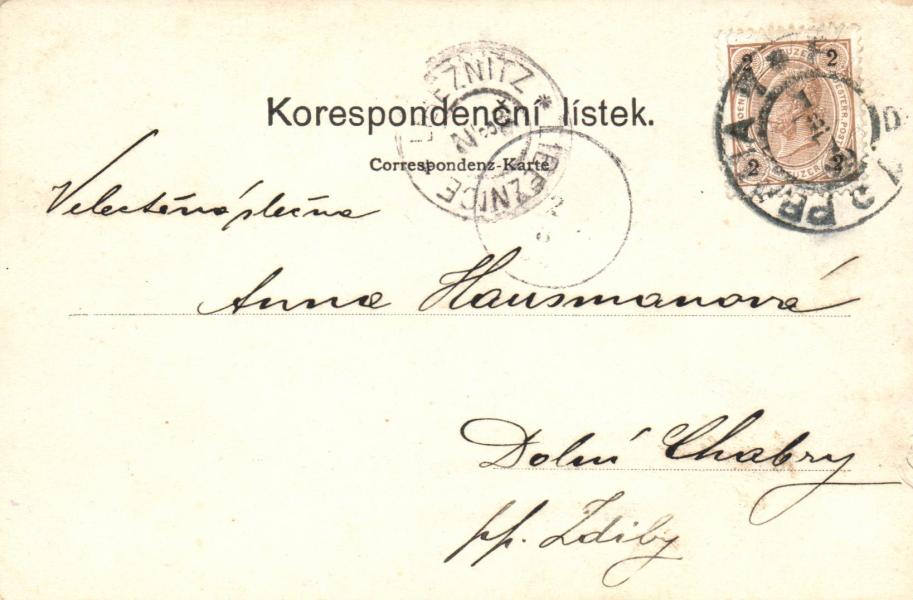 Korespondenční lístek.
Correspondenz-Karte
LIBEZNITZ * LIBEZNICE
2 KREUZER 2
2 KREUZER 2
PRAHA
Velectěná slečna
Anna Hausmanová
Dolní Chabry
pp. Zdiby